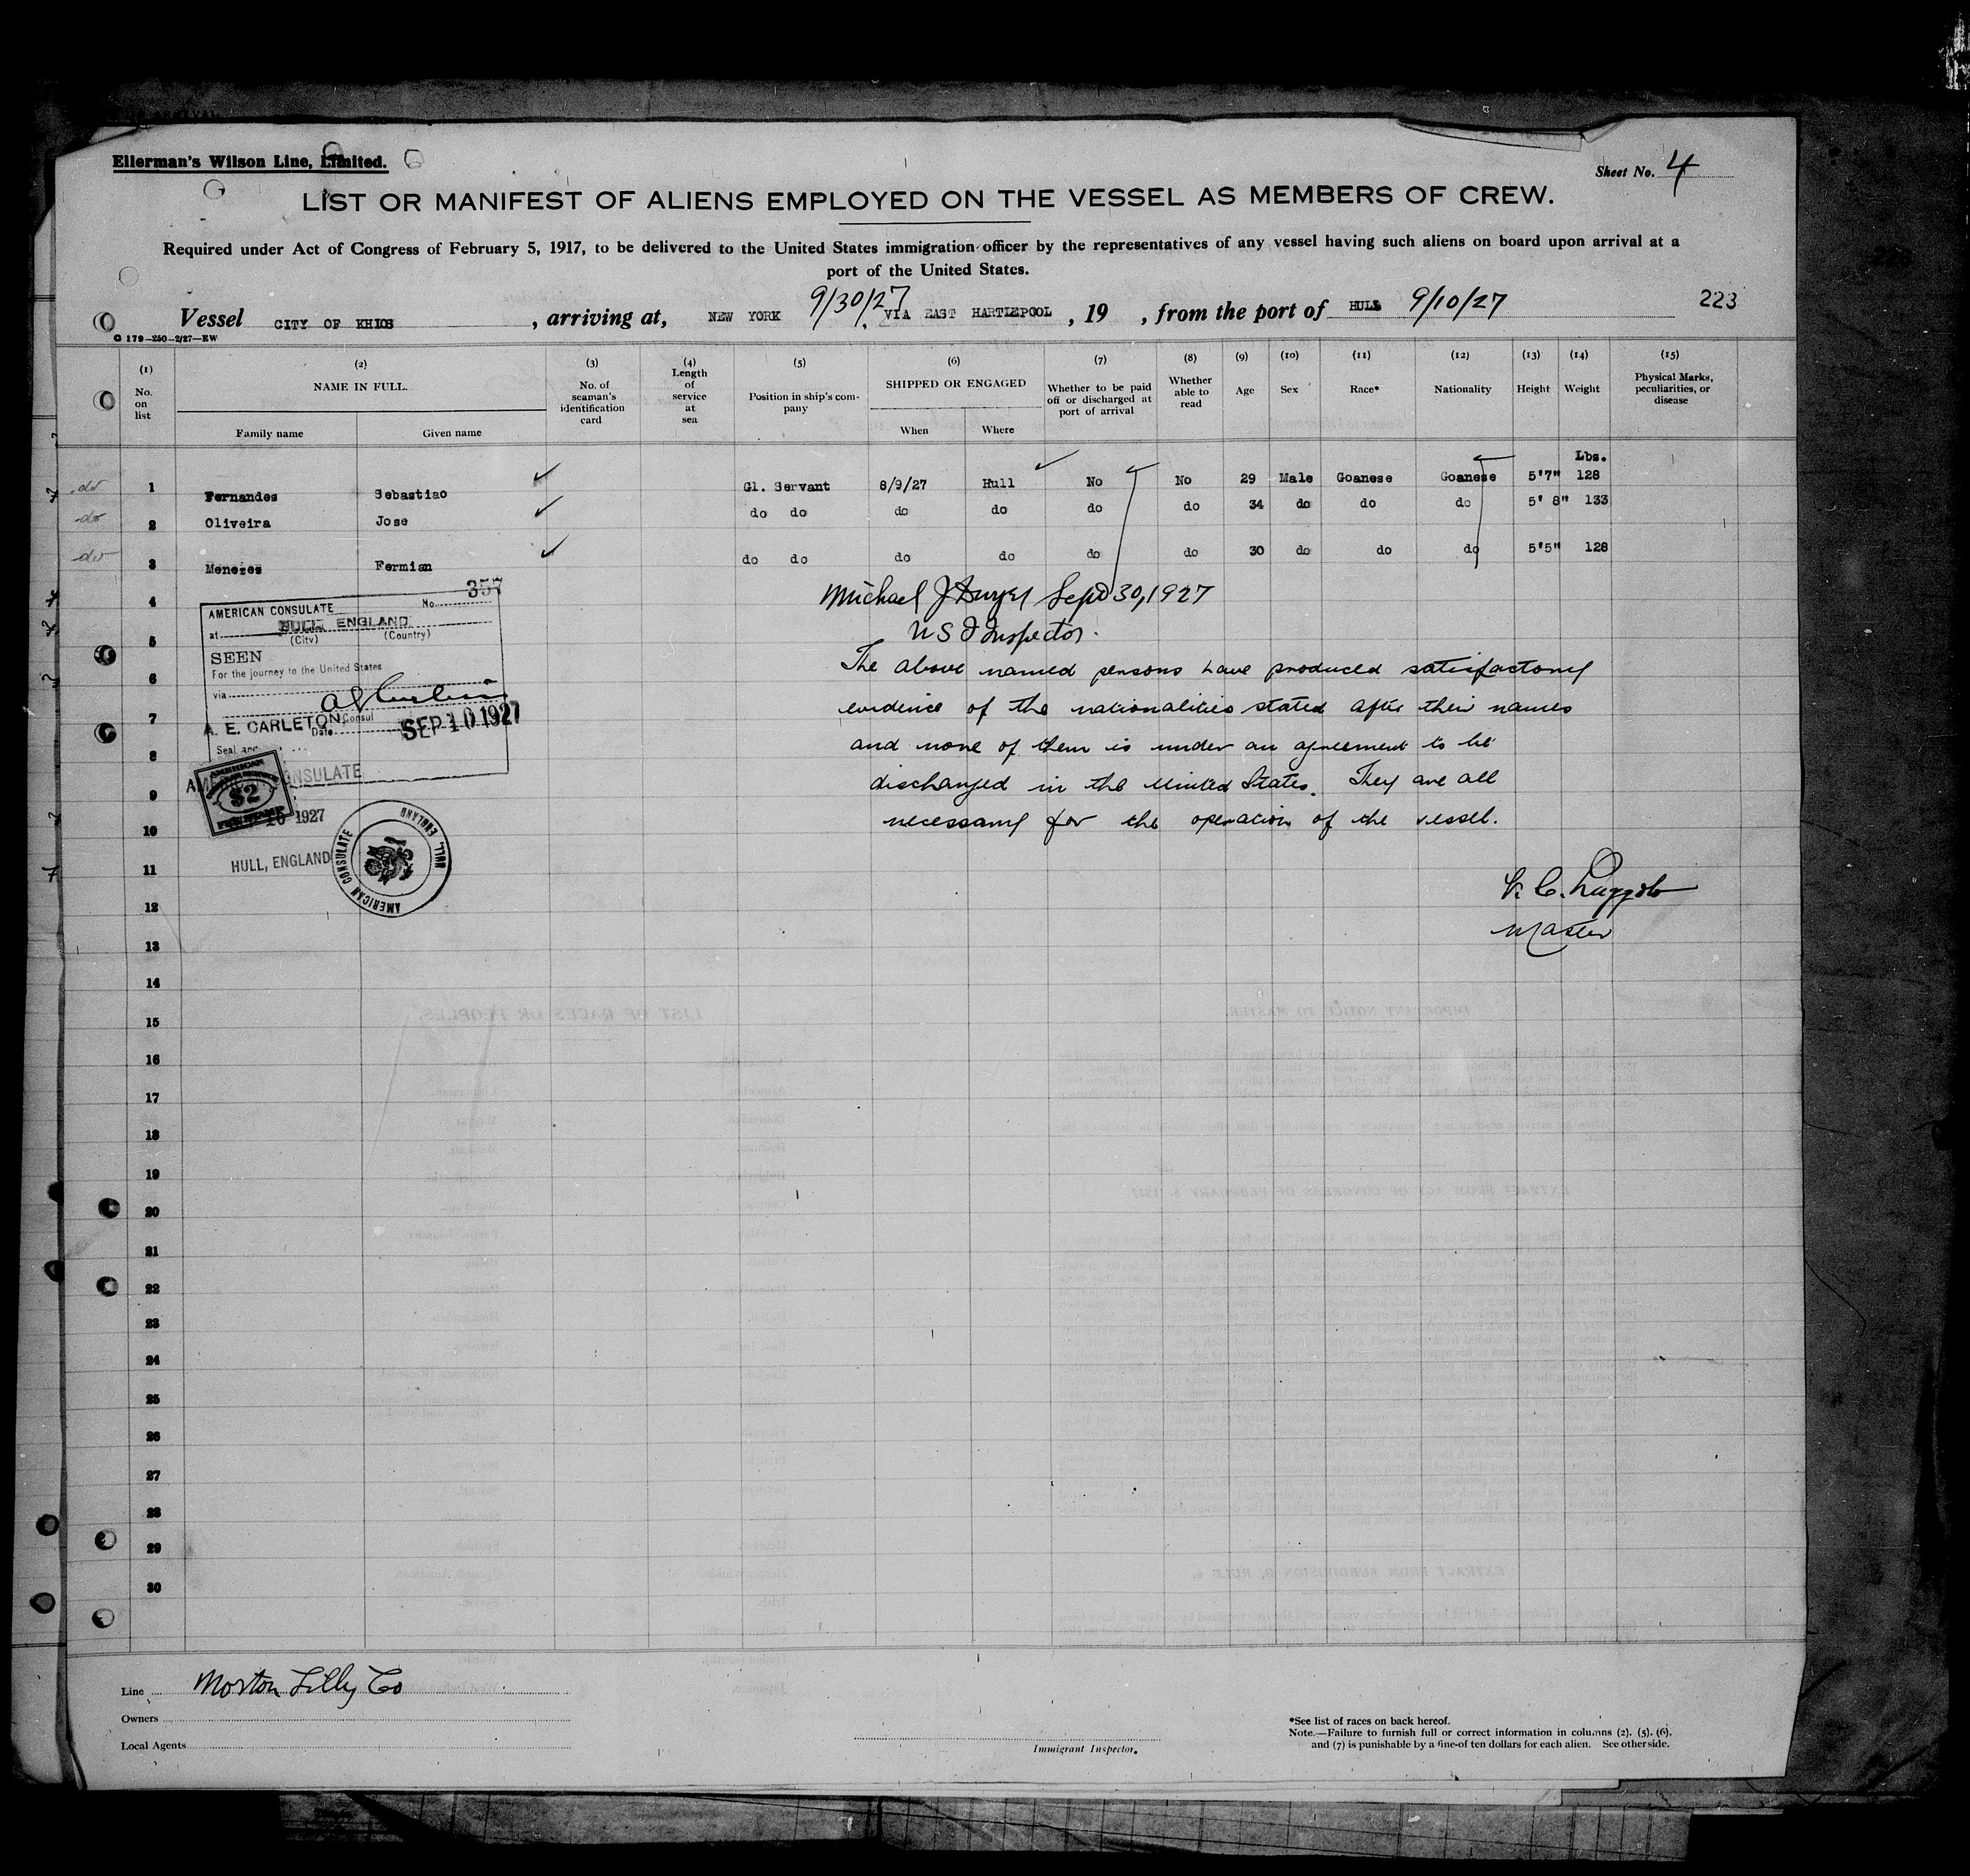 Ellerman's Wilson Line, Limited.
Sheet No. 4
LIST OR MANIFEST OF ALIENS EMPLOYED ON THE VESSEL AS MEMBERS OF CREW.
Required under Act of Congress of February 5, 1917, to be delivered to the United States immigration officer by the representatives of any vessel having such aliens on board upon arrival at a
port of the United States.
Vessel CITY OF KHIOS , arriving at, NEW YORK 9/30/27 VIA EAST HARTLEPOOL , 19 , from the port of HULL 9/10/27 223
G 179-250-2/27-EW
(1) (2) (3) (4) (5) (6) (7) (8) (9) (10) (11) (12) (13) (14) (15)
No. on list NAME IN FULL. No. of seaman's identification card Length of service at sea Position in ship's company SHIPPED OR ENGAGED Whether to be paid off or discharged at port of arrival Whether able to read Age Sex Race* Nationality Height Weight Physical Marks, peculiarities, or disease
Family name Given name When Where
Lbs.
do 1 Fernandes Sebastiao Gl. Servant 8/9/27 Hull No No 29 Male Goanese Goanese 5'7" 128
do 2 Oliveira Jose do do do do do do 34 do do do 5' 8" 133
do 3 Menezes Fermian do do do do do do 30 do do do 5'5" 128
4
5
6
7
8
9
10
11
12
13
14
15
16
17
18
19
20
21
22
23
24
25
26
27
28
29
30
AMERICAN CONSULATE No. 357
at HULL ENGLAND
(City) (Country)
SEEN
For the journey to the United States
via
A. E. CARLETON Consul
Date SEP 10 1927
Seal and
AMERICAN CONSULATE
AMERICAN
$2
FEE STAMP
10 1927
HULL, ENGLAND
AMERICAN CONSULATE HULL, ENGLAND
Michael J Dwyer Sept 30, 1927
U S I Inspector.
The above named persons have produced satisfactory
evidence of the nationalities stated after their names
and none of them is under an agreement to be
discharged in the United States. They are all
necessary for the operation of the vessel.
Master
Line Morton Lilly Co
Owners
Local Agents
Immigrant Inspector.
*See list of races on back hereof.
Note.—Failure to furnish full or correct information in columns (2), (5), (6),
and (7) is punishable by a fine of ten dollars for each alien. See other side.
LIST OF RACES OR PEOPLES.
IMPORTANT NOTICE TO MASTER
EXTRACT FROM ACT OF CONGRESS OF FEBRUARY 5, 1917.
EXTRACT FROM SUBDIVISION D, RULE 6.